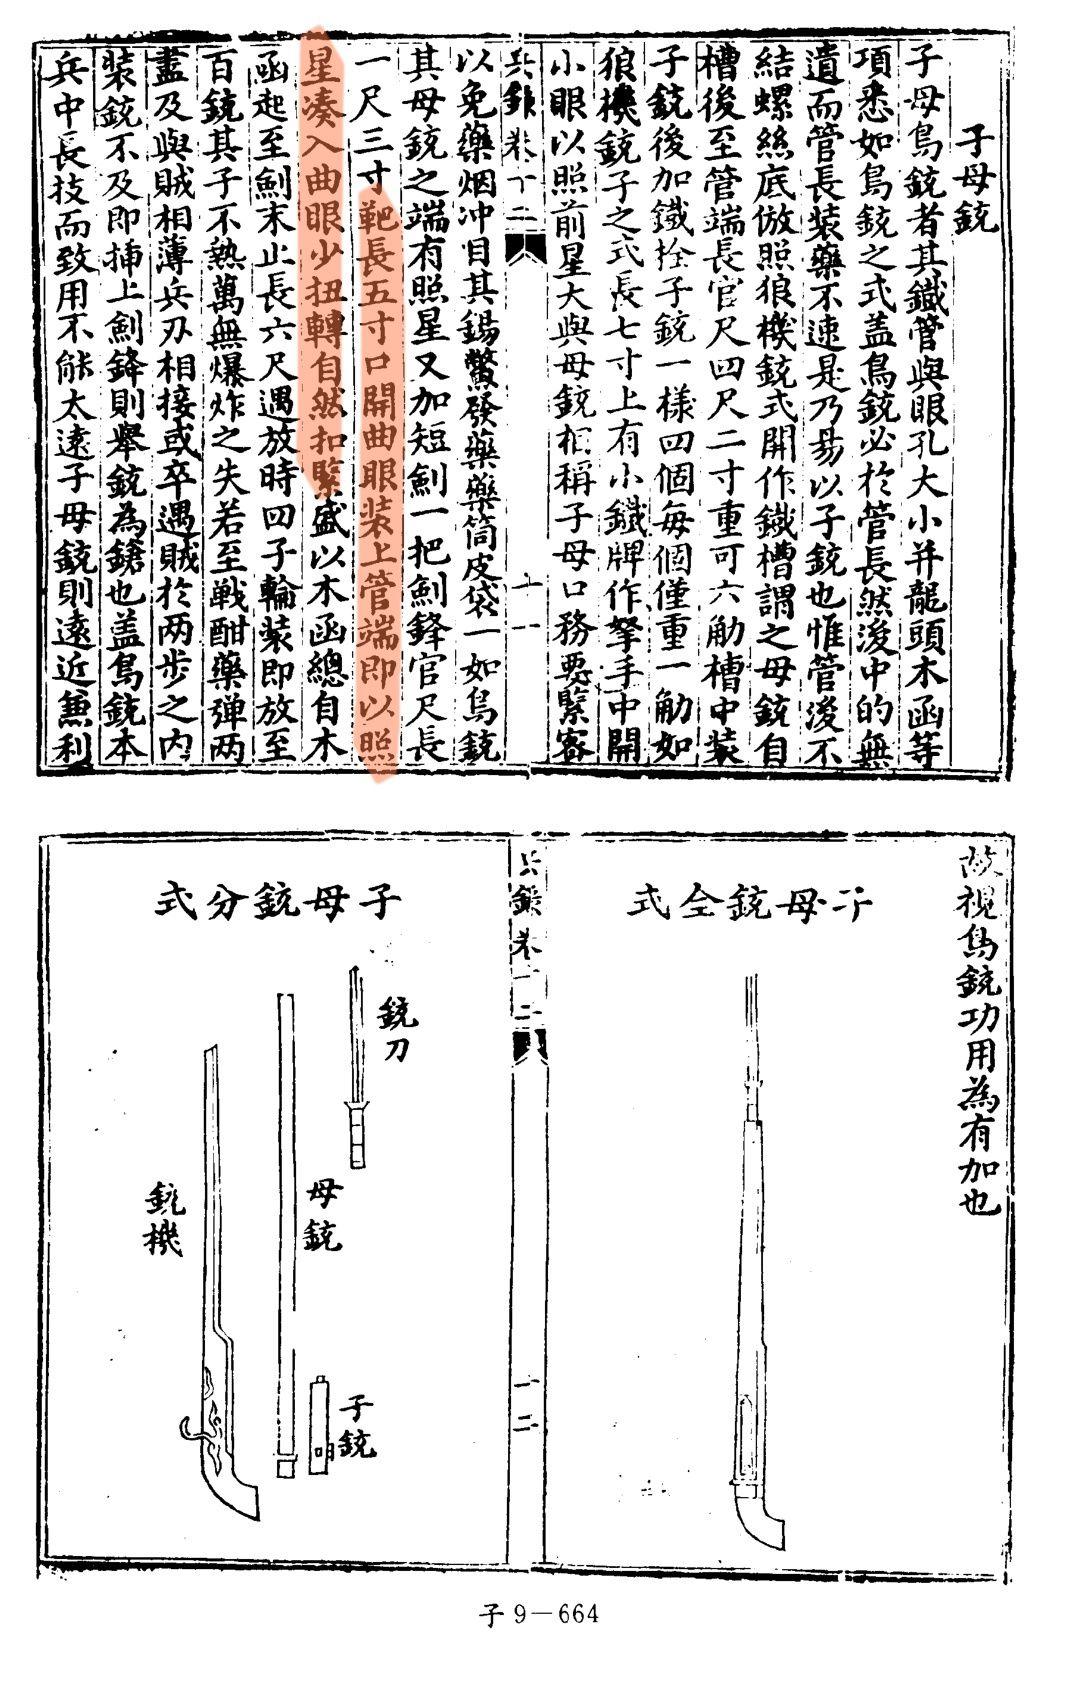 子母銃
子母鳥銃者其鐵管與眼孔大小并龍頭木函等
項悉如鳥銃之式盖鳥銃必於管長然後中的無
遺而管長裝藥不速是乃易以子銃也惟管後不
結螺絲底倣照狼機銃式開作鐵槽謂之母銃自
槽後至管端長官尺四尺二寸重可六觔槽中裝
子銃後加鐵栓子銃一樣四個每個僅重一觔如
狼機銃子之式長七寸上有小鐵牌作拏手中開
小眼以照前星大與母銃相稱子母口務要緊密
兵錄卷十二
十一
以免藥烟冲目其錫鱉發藥藥筒皮袋一如鳥銃
其母銃之端有照星又加短劍一把劍鋒官尺長
一尺三寸靶長五寸口開曲眼裝上管端即以照
星凑入曲眼少扭轉自然扣緊盛以木函總自木
函起至劍末止長六尺遇放時四子輪裝即放至
百銃其子不熱萬無爆炸之失若至戰酣藥弹两
盡及與賊相薄兵刃相接或卒遇賊於两步之内
裝銃不及即插上劍鋒則舉銃為鎗也盖鳥銃本
兵中長技而致用不能太遠子母銃則遠近兼利
故視鳥銃功用為有加也
子母銃全式
兵錄卷十二
十二
子母銃分式
銃刀
母銃
子銃
銃機
子9－664